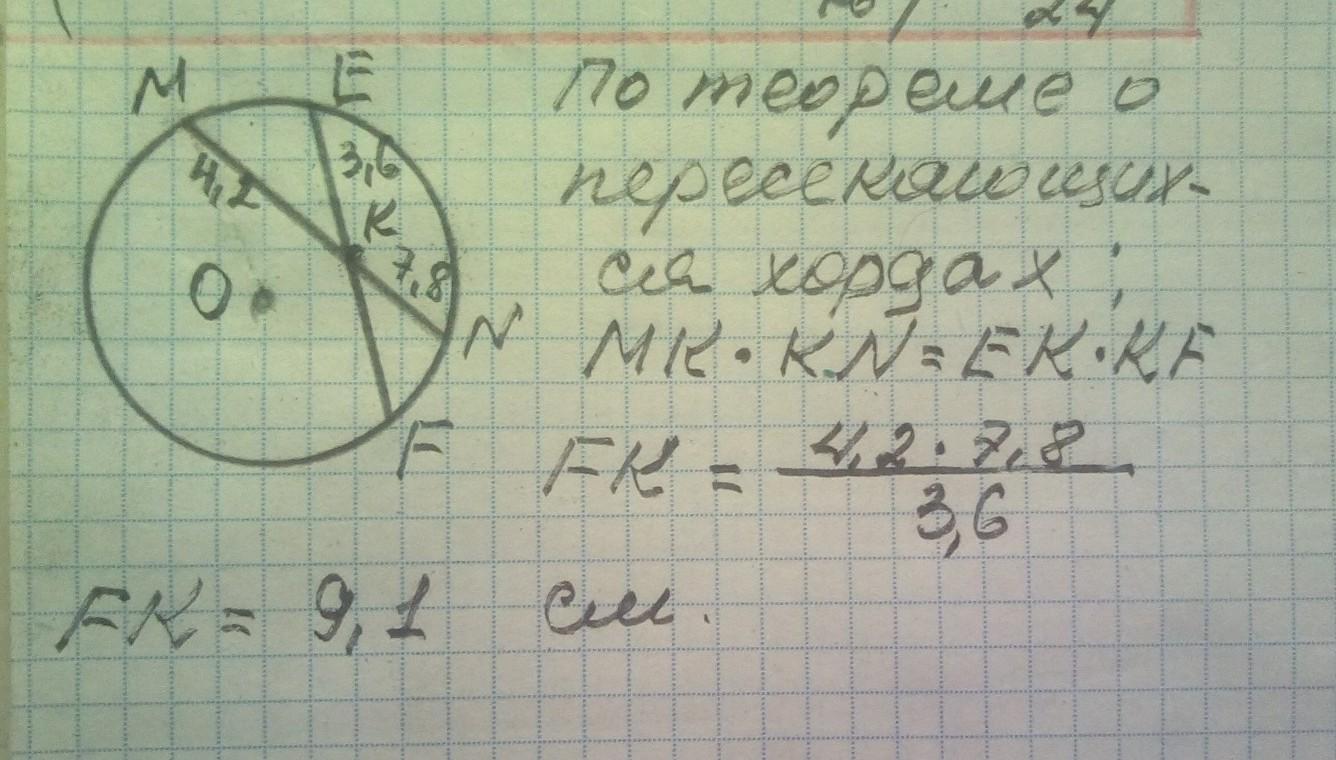 24
M
E
4,2
3,6
K
7,8
O
N
F
По теореме о
пересекающих-
ся хордах ;
MK · KN = EK · KF
FK = 4,2 · 7,8
3,6
FK = 9,1 см.